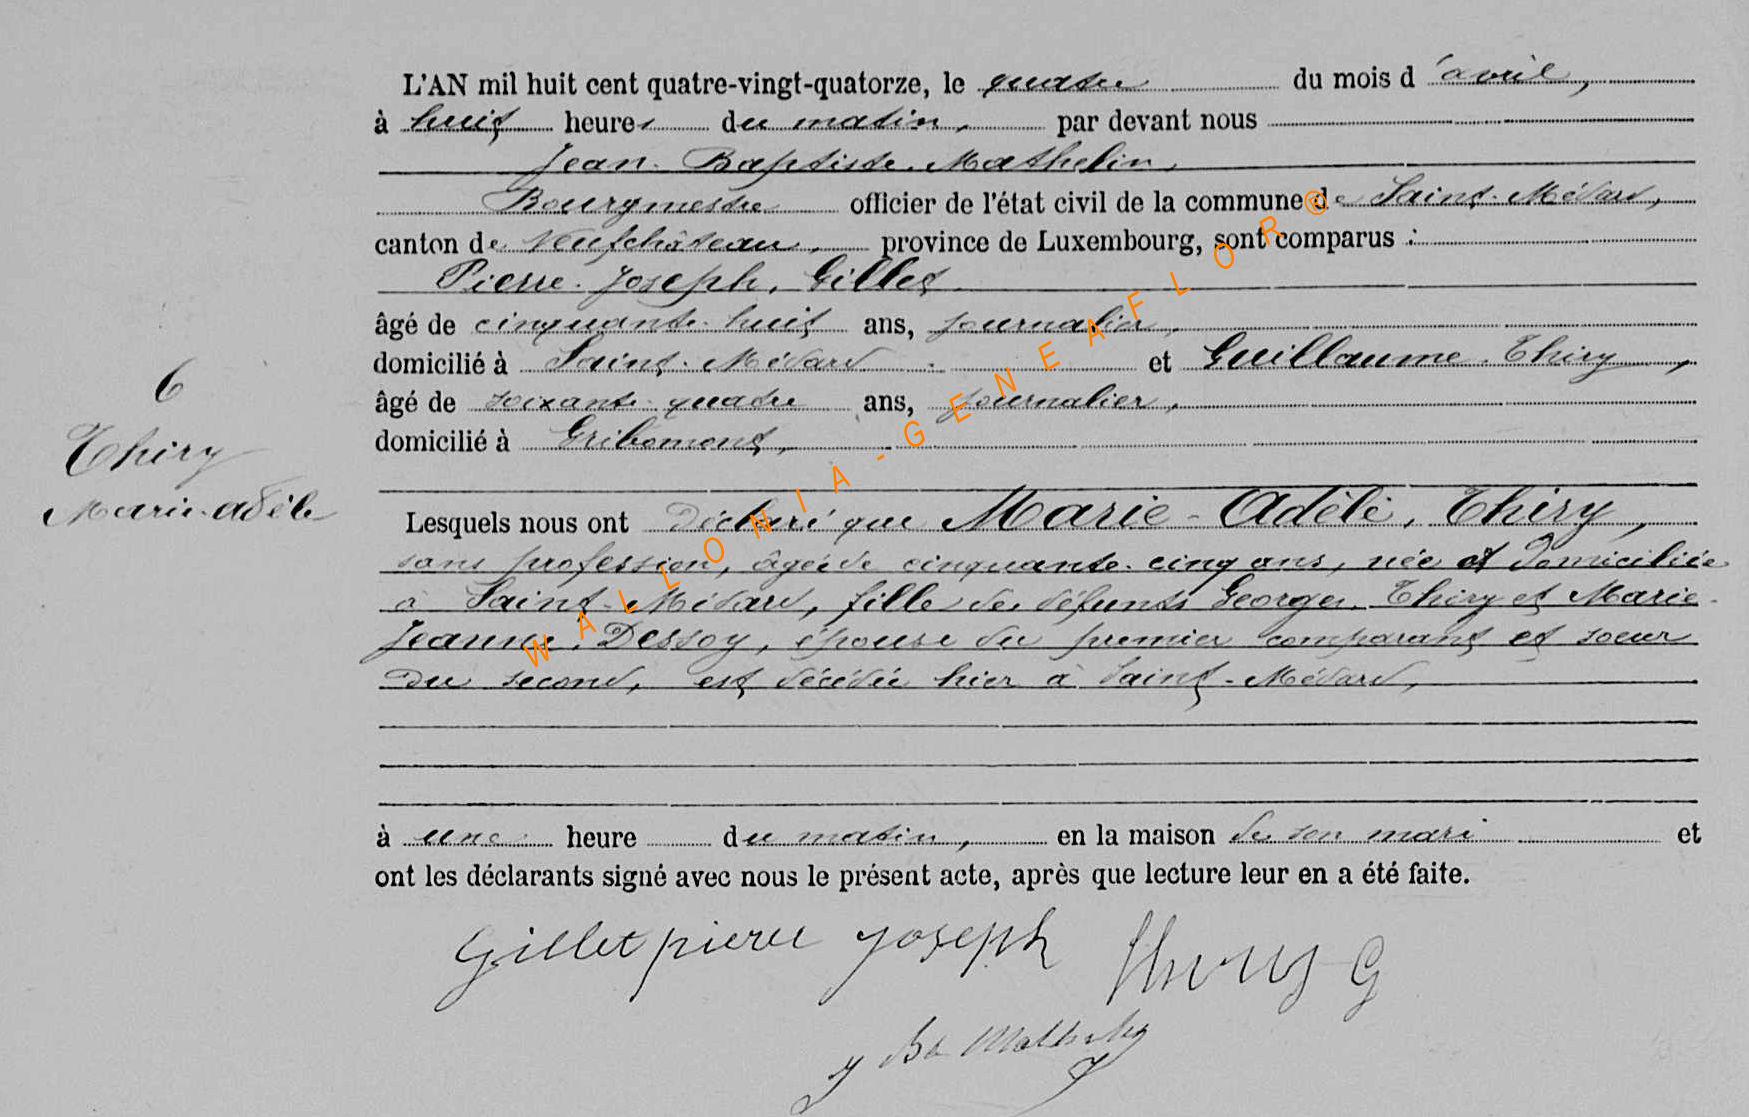 L'AN mil huit cent quatre-vingt-quatorze, le quatre du mois d'avril,
à huit heures du matin, par devant nous
Jean-Baptiste Mathelin,
Bourgmestre officier de l'état civil de la commune de Saint-Médard,
canton de Neufchâteau, province de Luxembourg, sont comparus :
Pierre-Joseph, Gillet
âgé de cinquante-huit ans, journalier,
domicilié à Saint-Médard et Guillaume Thiry,
âgé de soixante-quatre ans, journalier,
domicilié à Gribomont,
6
Thiry
Marie-Adèle
Lesquels nous ont déclaré que Marie-Adèle, Thiry,
sans profession, âgée de cinquante-cinq ans, née et domiciliée
à Saint-Médard, fille des défunts Georges Thiry et Marie-
Jeanne Dessoy, épouse du premier comparant et soeur
du second, est décédée hier à Saint-Médard,
à une heure du matin, en la maison de son mari et
ont les déclarants signé avec nous le présent acte, après que lecture leur en a été faite.
Gillet pierre joseph Thiry G
J Bte Mathelin
WALLONIA-GENEAFLOR®